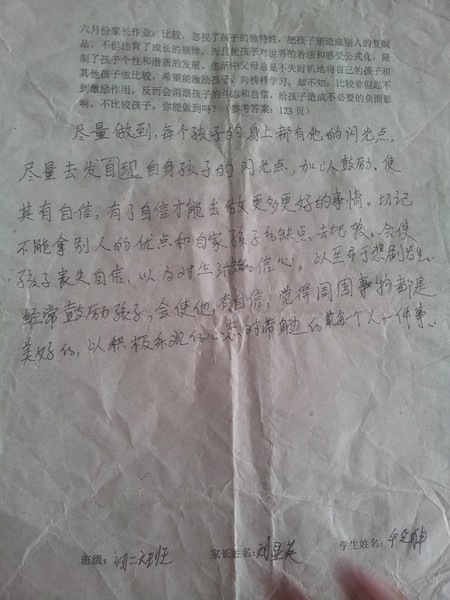 六月份家长作业：比较，忽视了孩子的独特性，把孩子塑造成别人的复制
品，不但违背了成长的规律，而且使孩子对世界的看法和感受公式化，限
制了孩子个性和潜质的发展。生活中父母总是不失时机地将自己的孩子和
其他孩子做比较，希望能激励孩子，向榜样学习，却不知，比较非但起不
到激励作用，反而会消溺孩子的斗志和自信，给孩子造成不必要的负面影
响，不比较孩子，你能做到吗？（参考答案：123页）
尽量做到，每个孩子的身上都有他的闪光点，
尽量去发现自身孩子的闪光点，加以鼓励、使
其有自信，有了自信才能去做更多更好的事情。切记
不能拿别人的优点和自家孩子的缺点去比较、会使
孩子丧失自信，以及对生活的信心。以至于想别
经常鼓励孩子，会使他有自信，觉得周围事物都是
美好的，以积极乐观的心态对待身边的每个人一件事、
班级：初二 班 家长姓名：刘显英 学生姓名：